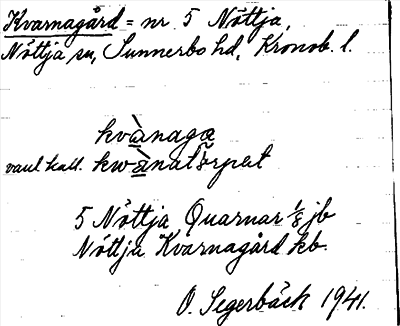 Kvarnagård = nr 5 Nöttja,
Nöttja sn, Sunnerbo hd, Kronob. l.
kvànagæ
vanl. kall. kwànatörpet
5 Nöttja Quarnar 1/8 jb
Nöttja Kvarnagård kb.
O. Segerbäck 1941.